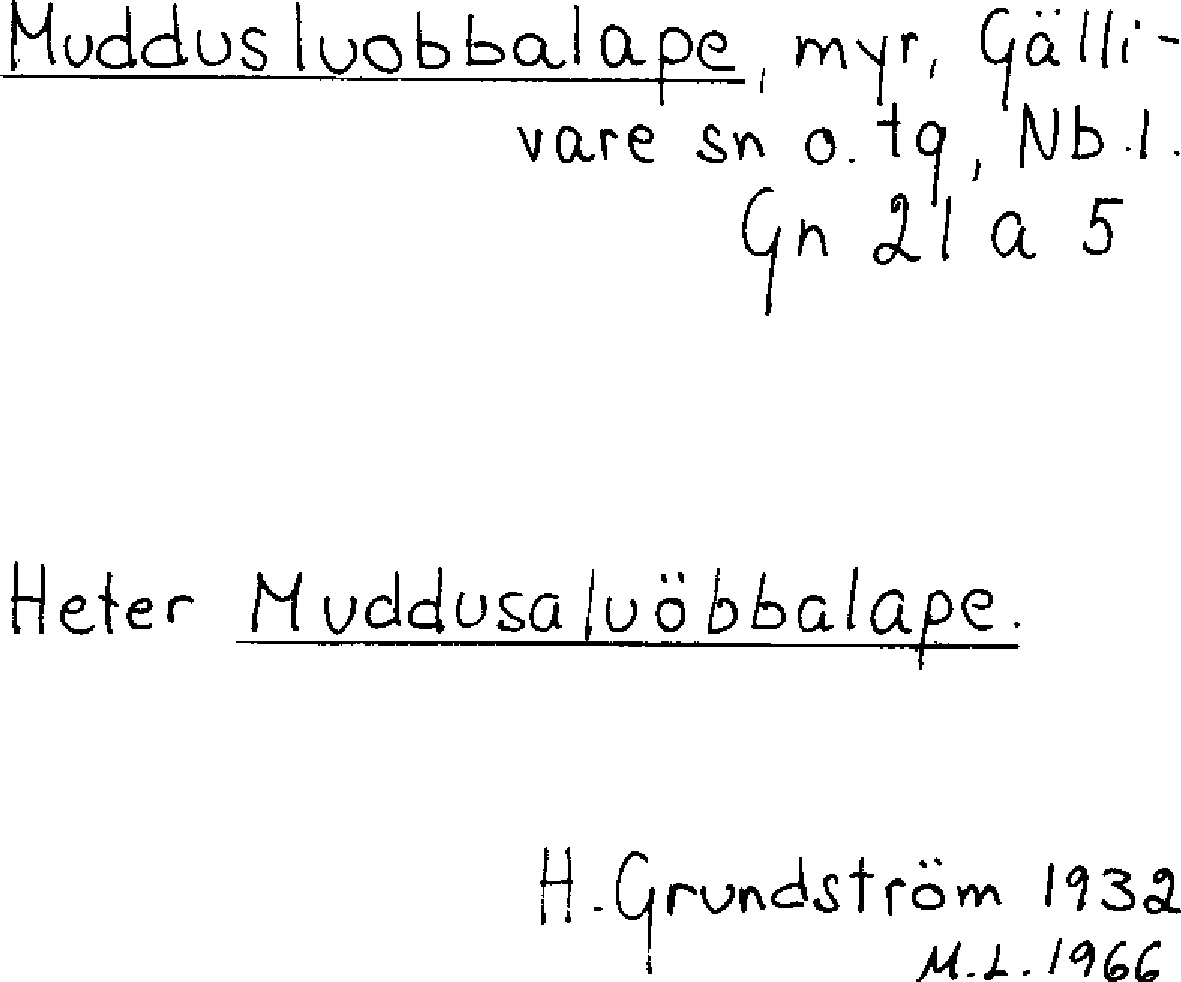 Muddusluobbalape, myr, Gälli-
vare sn o. tg, Nb.l.
Gn 21 a 5
Heter Muddusaluöbbalape.
H. Grundström 1932
M.L. 1966